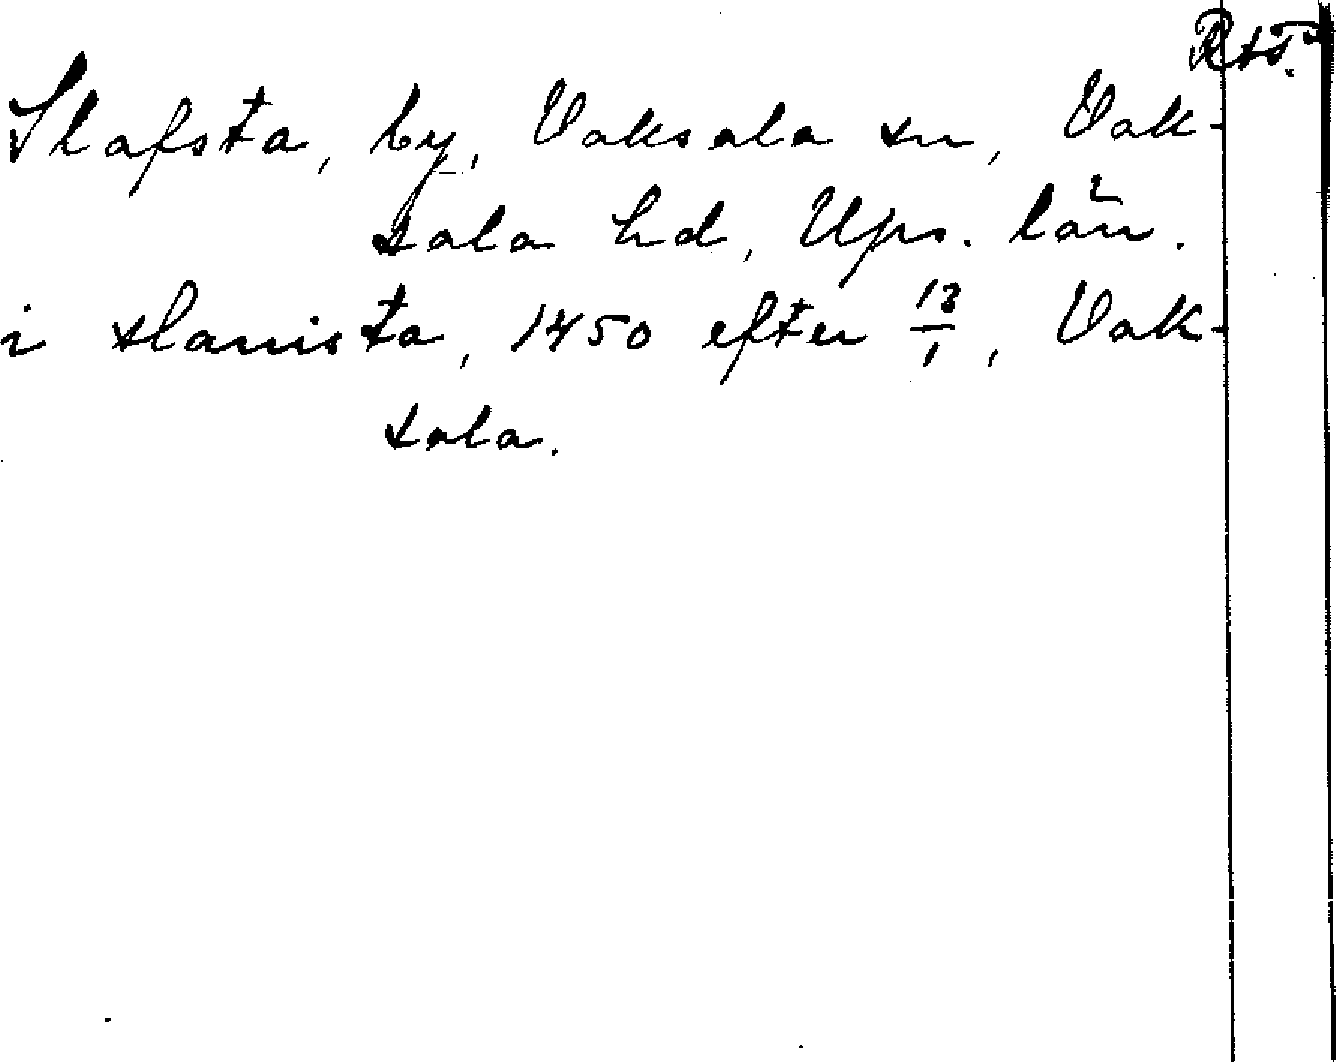 Slafsta, by, Vaksala sn, Vak-
sala hd, Ups. län.
i slauista, 1450 efter 13/1, Vak-
sala.